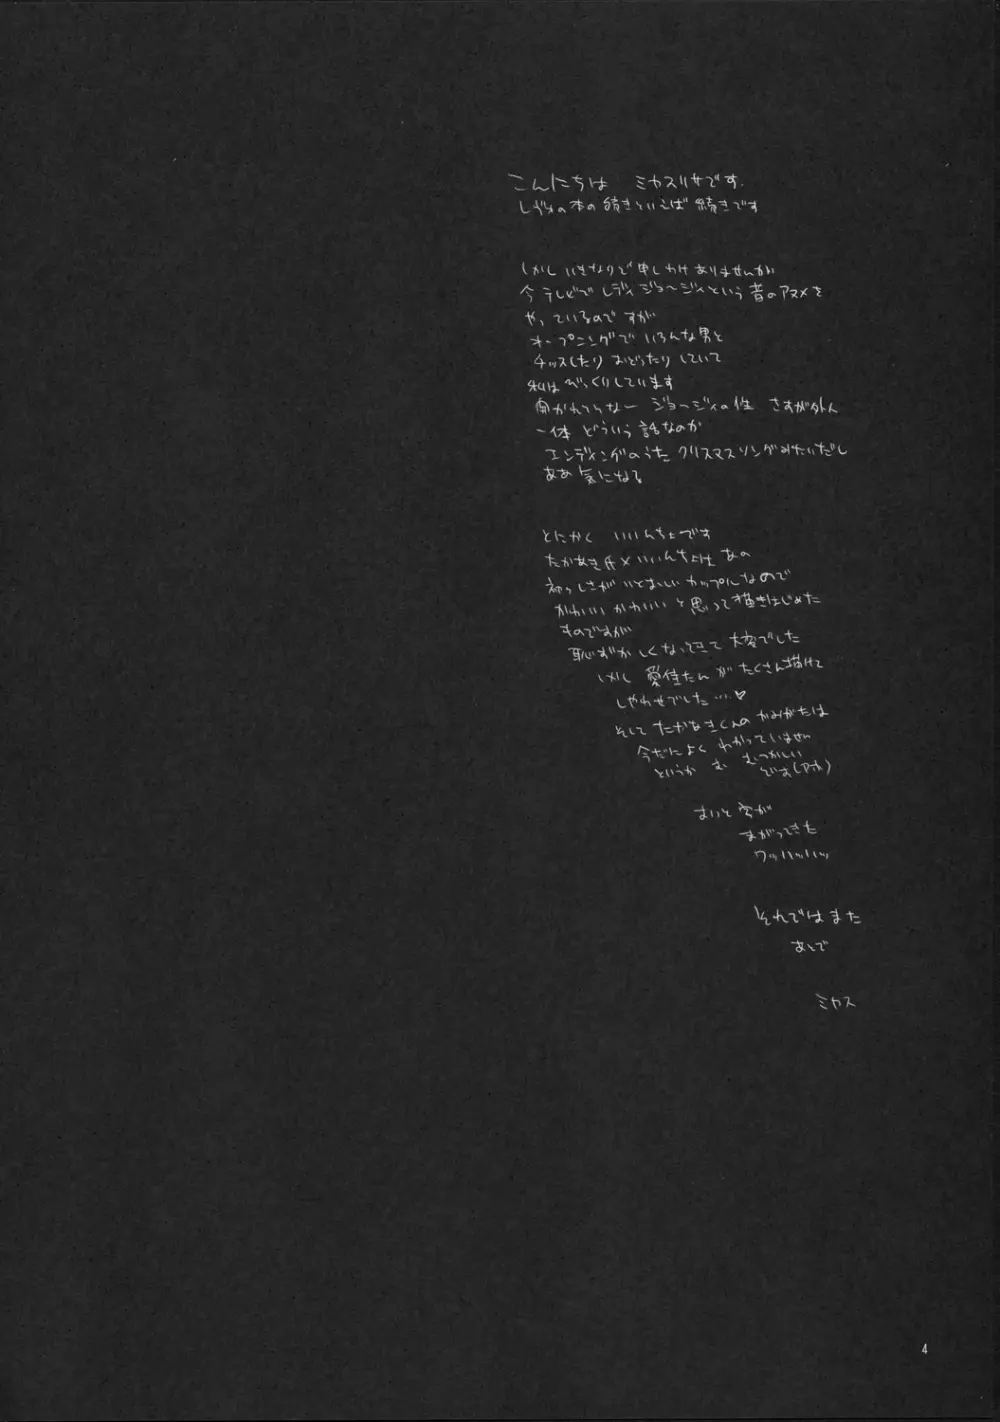 こんにちは ミカスリサです.
レヴィの本の続きといえば続きです
しかし いきなりで 申しわけありませんが
今 テレビで レディジョージィという 昔のアニメを
やっているのですが
オープニングで いろんな男と
チッスしたり おどったりしていて
私は びっくりしています
ジョージィの性 さすが外人
一体 どういう 話なのか
エンディングのうた クリスマスソングみたいだし
ああ 気になる
とにかく いいんちょです
たかあき氏×いいんちょは あの
初々しさが いとおしい カップルなので
かわいい かわいい と思って 描きはじめた
ものですが
恥ずかしくなってきて 大変でした
しかし 愛佳たん が たくさん描けて
しやわせでした…♡
そして たかあきくんの かみがたは
今だによく わかっていません
というか む むつかしい
です(アホ)
字が
まがってきた
ワッハッハッ
それではまた
あとで
ミカス
4